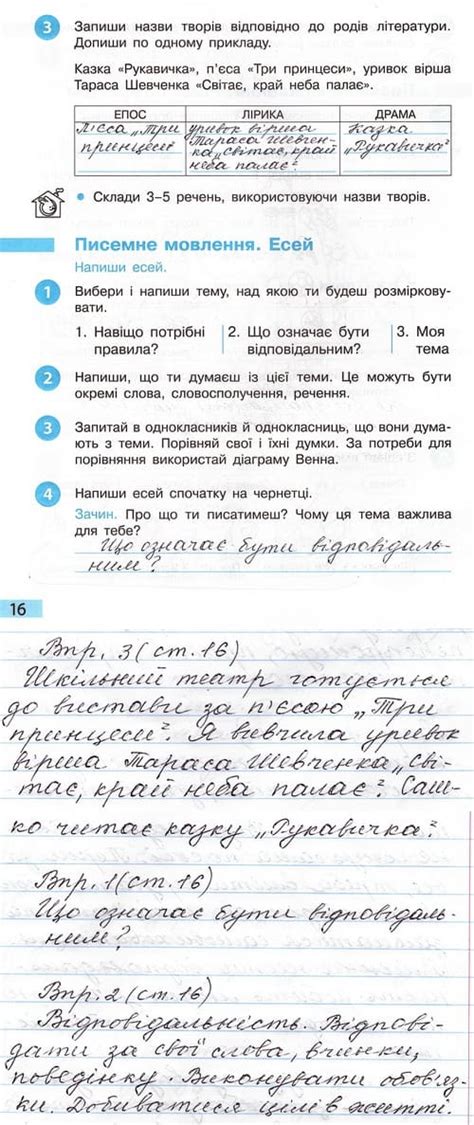 3 Запиши назви творів відповідно до родів літератури.
Допиши по одному прикладу.
Казка «Рукавичка», п'єса «Три принцеси», уривок вірша
Тараса Шевченка «Світає, край неба палає».
ЕПОС ЛІРИКА ДРАМА
П'єса „Три принцеси" уривок вірша Тараса Шевчен-ка „Світає, край неба палає". Казка „Рукавичка"
• Склади 3–5 речень, використовуючи назви творів.
Писемне мовлення. Есей
Напиши есей.
1 Вибери і напиши тему, над якою ти будеш розмірковувати.
1. Навіщо потрібні правила? 2. Що означає бути відповідальним? 3. Моя тема
2 Напиши, що ти думаєш із цієї теми. Це можуть бути
окремі слова, словосполучення, речення.
3 Запитай в однокласників й однокласниць, що вони дума-
ють з теми. Порівняй свої і їхні думки. За потреби для
порівняння використай діаграму Венна.
4 Напиши есей спочатку на чернетці.
Зачин. Про що ти писатимеш? Чому ця тема важлива
для тебе?
Що означає бути відповідаль-
ним?
16
Впр. 3 (ст. 16)
Шкільний театр готується
до вистави за п'єсою „Три
принцеси". Я вивчила уривок
вірша Тараса Шевченка „Сві-
тає, край неба палає". Саш-
ко читає казку „Рукавичка".
Впр. 1 (ст. 16)
Що означає бути відповідаль-
ним?
Впр. 2 (ст. 16)
Відповідальність. Відпові-
дати за свої слова, вчинки,
поведінку. Виконувати обов'яз-
ки. Добиватися цілі в житті.